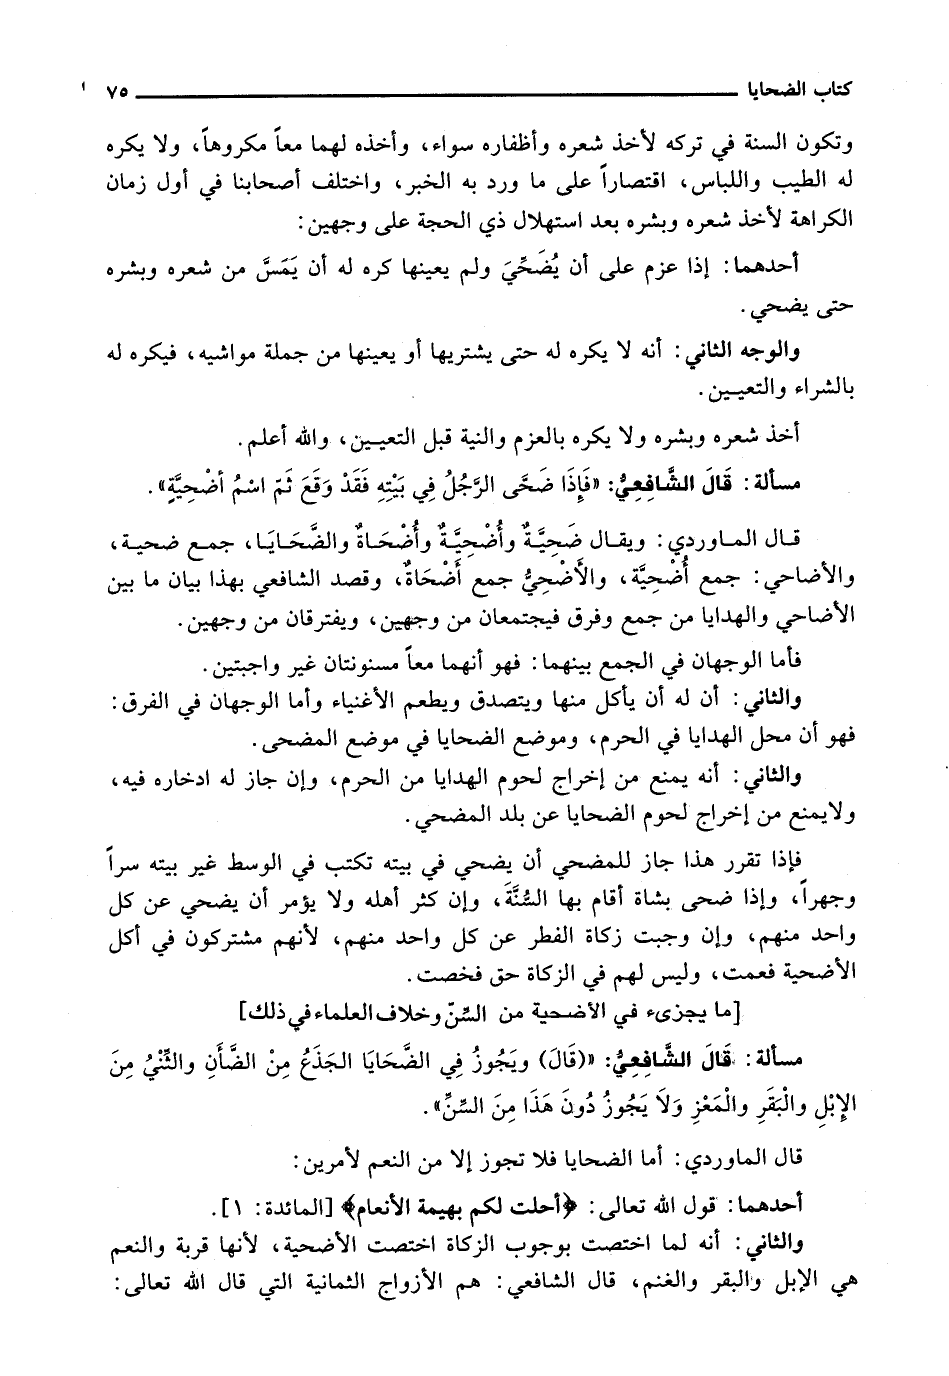 كتاب الضحايا ٧٥
وتكون السنة في تركه لأخذ شعره وأظفاره سواء، وأخذه لهما معاً مكروهاً، ولا يكره
له الطيب واللباس، اقتصاراً على ما ورد به الخبر، واختلف أصحابنا في أول زمان
الكراهة لأخذ شعره وبشره بعد استهلال ذي الحجة على وجهين:
أحدهما: إذا عزم على أن يُضَحِّيَ ولم يعينها كره له أن يَمَسَّ من شعره وبشره
حتى يضحي.
والوجه الثاني: أنه لا يكره له حتى يشتريها أو يعينها من جملة مواشيه، فيكره له
بالشراء والتعيين.
أخذ شعره وبشره ولا يكره بالعزم والنية قبل التعيين، والله أعلم.
مسألة: قَالَ الشَّافِعِيُّ: «فَإِذَا ضَحَّى الرَّجُلُ فِي بَيْتِهِ فَقَدْ وَقَعَ ثَمّ اسْمُ أضْحِيَّةٍ».
قال الماوردي: ويقال ضَحِيَّةٌ وأُضْحِيَّةٌ وأُضْحَاةٌ والضَّحَايَا، جمع ضحية،
والأضاحي: جمع أُضْحِيَّة، والأَضْحِيُّ جمع أَضْحَاةٌ، وقصد الشافعي بهذا بيان ما بين
الأضاحي والهدايا من جمع وفرق فيجتمعان من وجهين، ويفترقان من وجهين.
فأما الوجهان في الجمع بينهما: فهو أنهما معاً مسنونتان غير واجبتين.
والثاني: أن له أن يأكل منها ويتصدق ويطعم الأغنياء وأما الوجهان في الفرق:
فهو أن محل الهدايا في الحرم، وموضع الضحايا في موضع المضحى.
والثاني: أنه يمنع من إخراج لحوم الهدايا من الحرم، وإن جاز له ادخاره فيه،
ولايمنع من إخراج لحوم الضحايا عن بلد المضحي.
فإذا تقرر هذا جاز للمضحي أن يضحي في بيته تكتب في الوسط غير بيته سراً
وجهراً، وإذا ضحى بشاة أقام بها السُّنَّةَ، وإن كثر أهله ولا يؤمر أن يضحي عن كل
واحد منهم، وإن وجبت زكاة الفطر عن كل واحد منهم، لأنهم مشتركون في أكل
الأضحية فعمت، وليس لهم في الزكاة حق فخصت.
[ما يجزىء في الأضحية من السِّنّ وخلاف العلماء في ذلك]
مسألة: قَالَ الشَّافِعِيُّ: «(قَالَ) ويَجُوزُ فِي الضَّحَايَا الجَذَعُ مِنْ الضَّأَنِ والثَّنِيُّ مِنَ
الإِبْلِ والْبَقَرِ والْمَعْزِ وَلَا يَجُوزُ دُونَ هَذَا مِنَ السِّنِّ».
قال الماوردي: أما الضحايا فلا تجوز إلا من النعم لأمرين:
أحدهما: قول الله تعالى: ﴿أحلت لكم بهيمة الأنعام﴾ [المائدة: ١].
والثاني: أنه لما اختصت بوجوب الزكاة اختصت الأضحية، لأنها قربة والنعم
هي الإبل والبقر والغنم، قال الشافعي: هم الأزواج الثمانية التي قال الله تعالى: